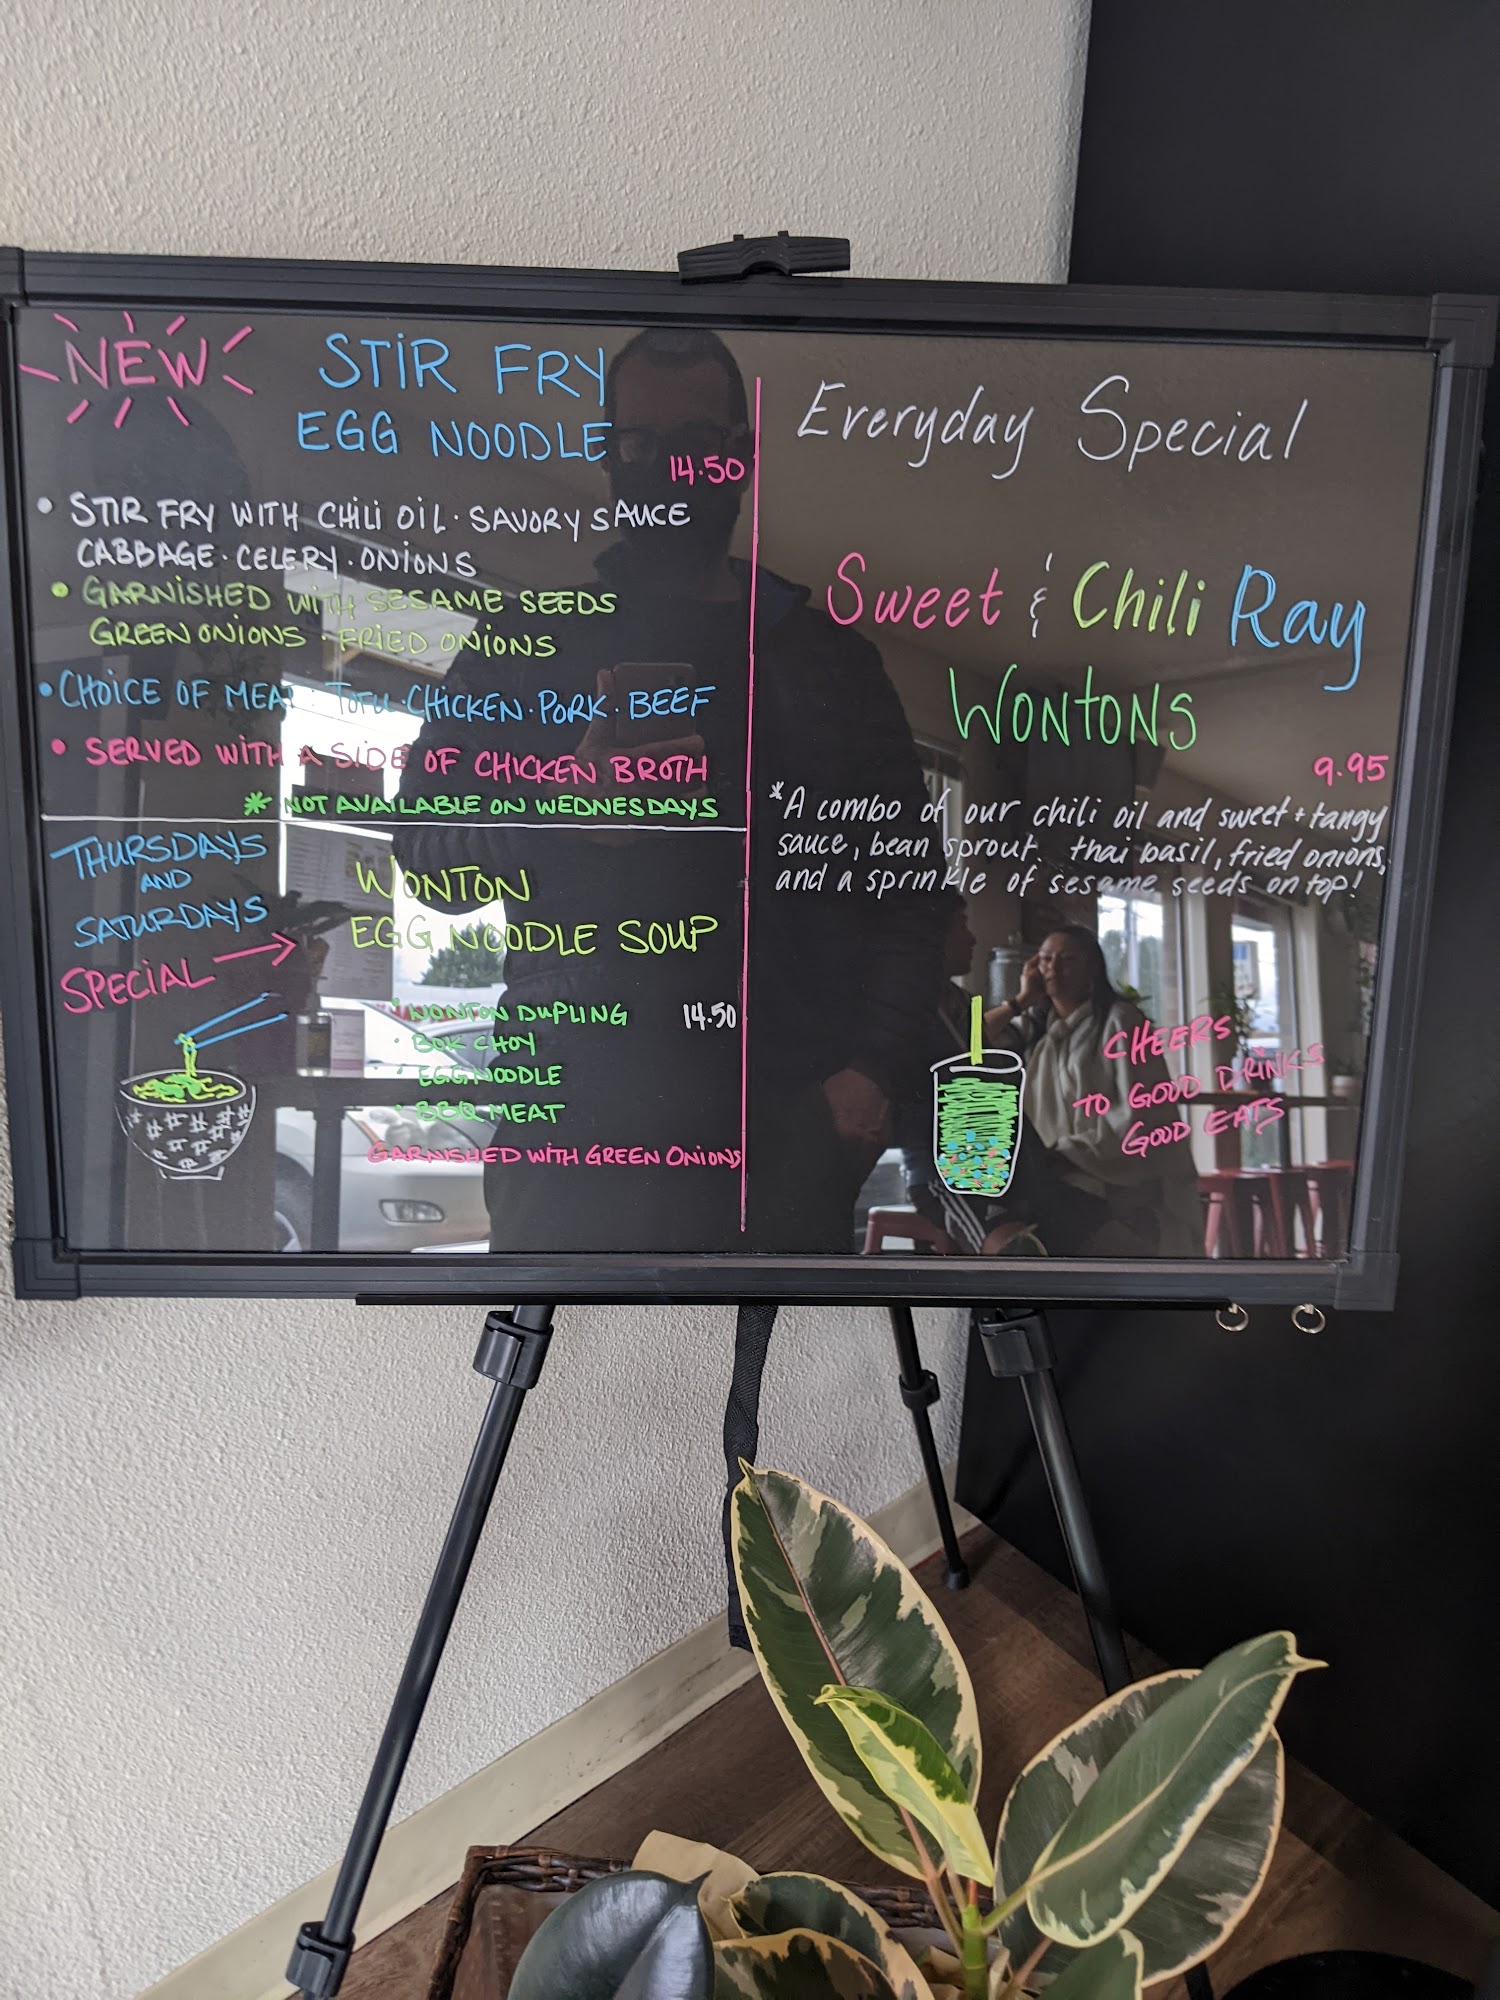 NEW
STIR FRY
EGG NOODLE
14.50
• STIR FRY WITH CHILI OIL · SAVORY SAUCE
CABBAGE · CELERY · ONIONS
• GARNISHED WITH SESAME SEEDS
GREEN ONIONS · FRIED ONIONS
• CHOICE OF MEAT: TOFU · CHICKEN · PORK · BEEF
• SERVED WITH A SIDE OF CHICKEN BROTH
* NOT AVAILABLE ON WEDNESDAYS
THURSDAYS
AND
SATURDAYS
SPECIAL →
WONTON
EGG NOODLE SOUP
14.50
• WONTON DUPLING
• BOK CHOY
• EGG NOODLE
• BBQ MEAT
GARNISHED WITH GREEN ONIONS
Everyday Special
Sweet & Chili Ray
WONTONS
9.95
*A combo of our chili oil and sweet + tangy
sauce, bean sprout, thai basil, fried onions,
and a sprinkle of sesame seeds on top!
CHEERS
TO GOOD DRINKS
GOOD EATS